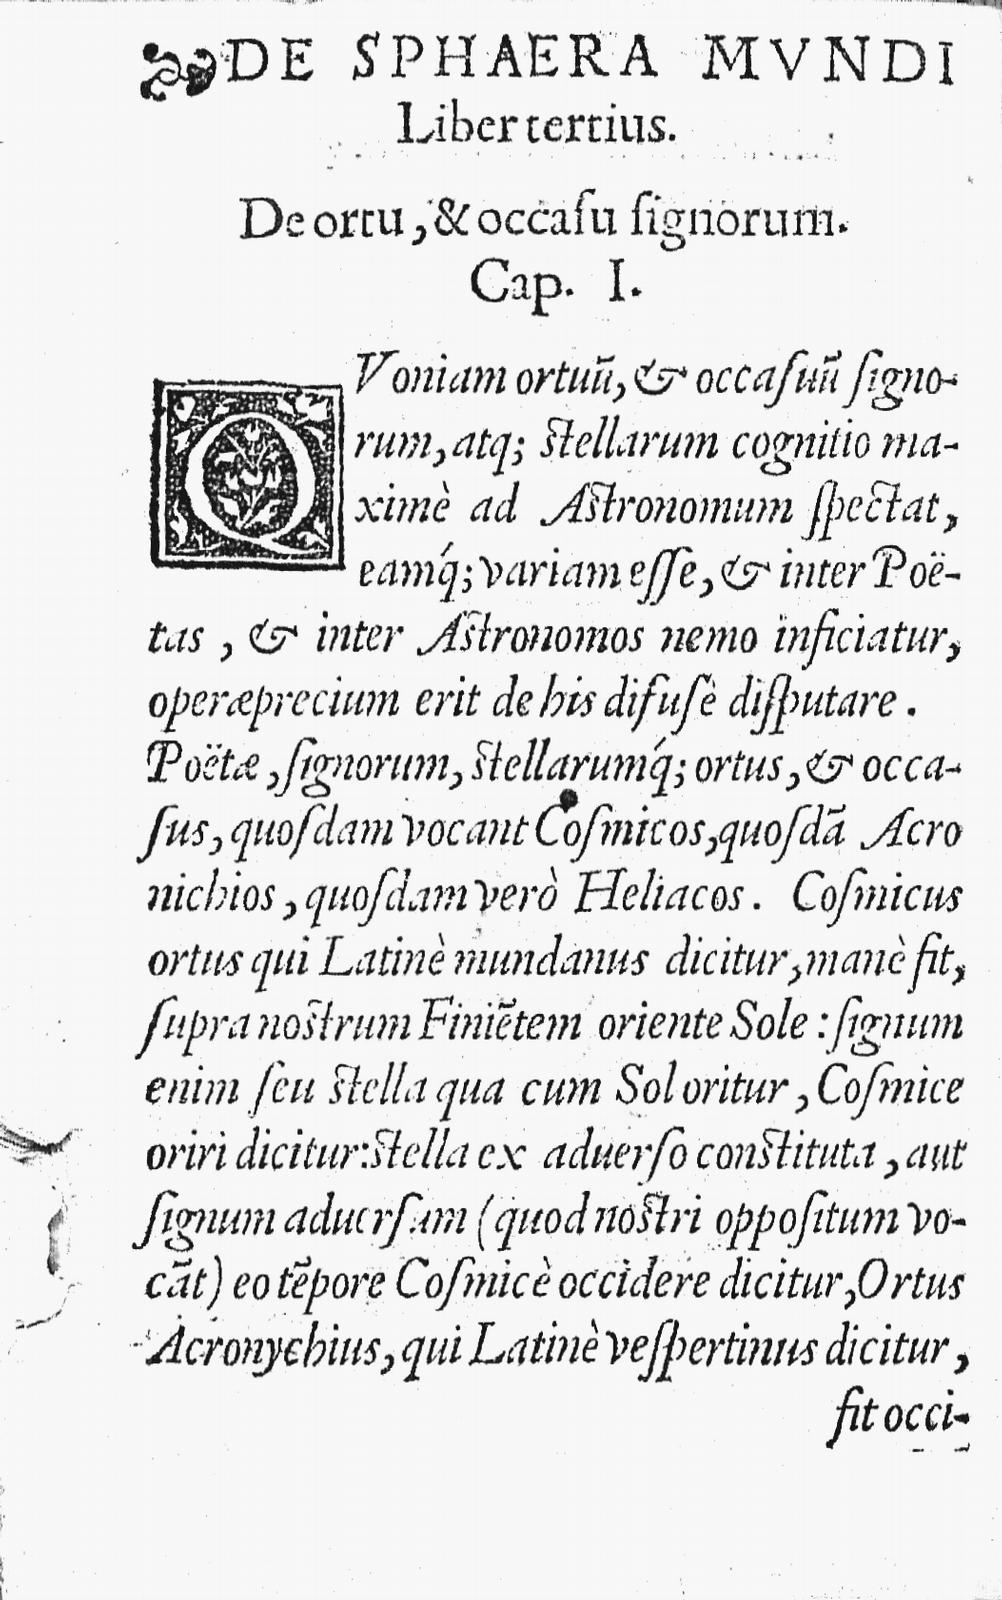 DE SPHAERA MVNDI
Liber tertius.
De ortu, & occaſu ſignorum.
Cap. I.
QVoniam ortuũ, & occaſuũ ſigno-
rum, atq; ſtellarum cognitio ma-
ximè ad Aſtronomum ſpectat,
eamq́; variam eſſe, & inter Poë-
tas, & inter Aſtronomos nemo inficiatur,
operæprecium erit de his difuſè diſputare.
Poëtæ, ſignorum, ſtellarumq́; ortus, & occa-
ſus, quoſdam vocant Coſmicos, quoſdã Acro
nichios, quoſdam verò Heliacos. Coſmicus
ortus qui Latinè mundanus dicitur, manè fit,
ſupra noſtrum Finiẽtem oriente Sole: ſignum
enim ſeu ſtella qua cum Sol oritur, Coſmice
oriri dicitur: ſtella ex aduerſo conſtituta, aut
ſignum aduerſum (quod noſtri oppoſitum vo-
cãt) eo tẽpore Coſmicè occidere dicitur, Ortus
Acronychius, qui Latinè veſpertinus dicitur,
fit occi-